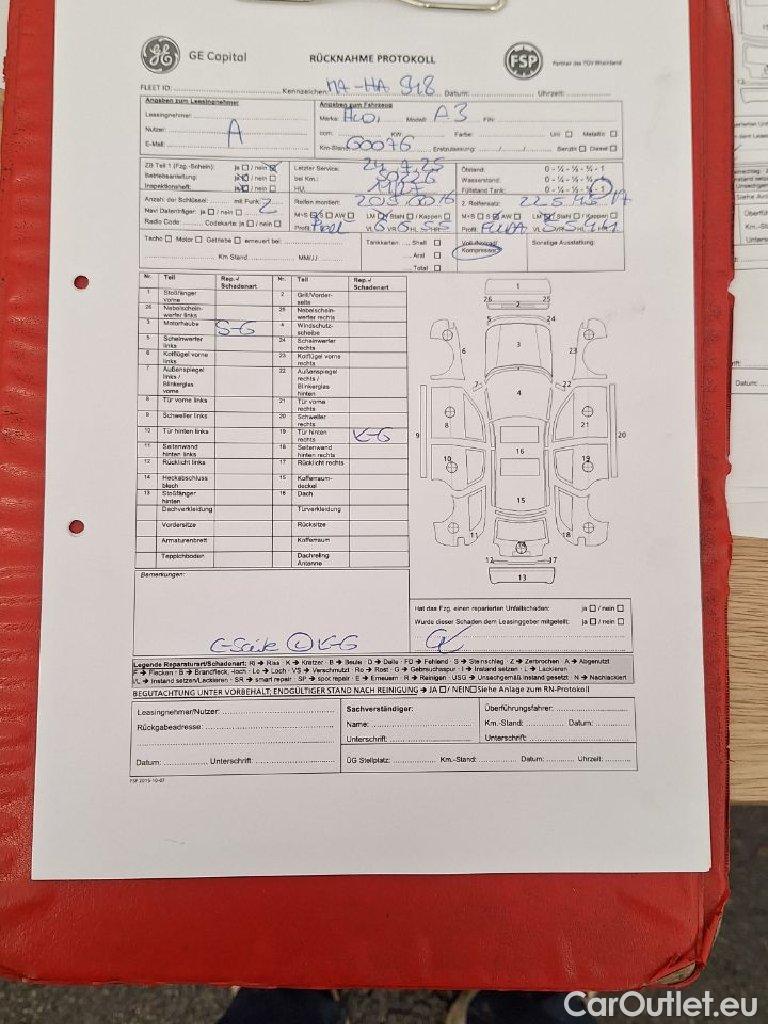 GE Capital
RÜCKNAHME PROTOKOLL
FSP
Partner des TÜV Rheinland
FLEET ID: Kennzeichen: MA-HA 918 Datum: Uhrzeit:
Angaben zum Leasingnehmer
Leasingnehmer:
Nutzer: A
E-Mail:
Angaben zum Fahrzeug
Marke: Audi Modell: A3 FIN:
ccm: KW: Farbe: Uni Metallic
Km-Stand: 60076 Erstzulassung: Benzin Diesel
ZB Teil 1 (Fzg.-Schein): ja / nein
Betriebsanleitung: ja / nein
Inspektionsheft: ja / nein
Letzter Service: 24.7.25
bei Km.:
HU
Ölstand: 0 - ¼ - ½ - ¾ - 1
Wasserstand: 0 - ¼ - ½ - ¾ - 1
Füllstand Tank: 0 - ¼ - ½ - ¾ - 1
Anzahl der Schlüssel: mit Funk: 2
Navi Datenträger: ja / nein
Radio Code: Codekarte: ja / nein
Reifen montiert:
M+S S AW LM Stahl / Kappen
Profil: VL 6 VR 6 HL 5 HR 5
2. Reifensatz: 225 45 17
M+S S AW LM Stahl / Kappen
Profil:
Tacho Motor Getriebe erneuert bei:
Km Stand MM/JJ
Tankkarten Shell
Aral
Total
Vollu./Notrad/
Kompressor
Sonstige Ausstattung:
Nr. Teil Rep.-/ Schadenart Nr. Teil Rep.-/ Schadenart
1 Stoßfänger vorne 2 Grill/Vorderseite
26 Nebelscheinwerfer links 25 Nebelscheinwerfer rechts
3 Motorhaube S-G 4 Windschutzscheibe
5 Scheinwerfer links 24 Scheinwerfer rechts
6 Kotflügel vorne links 23 Kotflügel vorne rechts
7 Außenspiegel links / Blinkerglas vorne 22 Außenspiegel rechts / Blinkerglas hinten
8 Tür vorne links 21 Tür vorne rechts
9 Schweller links 20 Schweller rechts
10 Tür hinten links 19 Tür hinten rechts K-G
11 Seitenwand hinten links 18 Seitenwand hinten rechts
12 Rücklicht links 17 Rücklicht rechts
14 Heckabschluss blech 15 Kofferraumdeckel
13 Stoßfänger hinten 16 Dach
Dachverkleidung Türverkleidung
Vordersitze Rücksitze
Armaturenbrett Kofferraum
Teppichboden Dachreling Antenne
1
26 25
2
5 24
3
6 23
7 22
4
8 21
9 20
16
10 19
15
11 18
14
12 17
13
Bemerkungen:
Hat das Fzg. einen reparierten Unfallschaden: ja / nein
Wurde dieser Schaden dem Leasinggeber mitgeteilt: ja / nein
Legende Reparaturart/Schadenart: Ri → Riss · K → Kratzer · B → Beule · D → Delle · FD → Fehlend · S → Steinschlag · Z → Zerbrochen · A → Abgenutzt
F → Flecken · B → Brandfleck, -loch · Lo → Loch · VS → Verschmutzt · Ro → Rost · G → Gebrauchsspur · I → Instand setzen · L → Lackieren
I/L → Instand setzen/Lackieren · SR → smart repair · SP → spot repair · E → Erneuern · R → Reinigen · UISG → Unsachgemäß instand gesetzt · N → Nachlackiert
BEGUTACHTUNG UNTER VORBEHALT; ENDGÜLTIGER STAND NACH REINIGUNG → JA / NEIN Siehe Anlage zum RN-Protokoll
Leasingnehmer/Nutzer:
Rückgabeadresse:
Datum: Unterschrift:
Sachverständiger:
Name:
Unterschrift:
Überführungsfahrer:
Km.-Stand: Datum:
Unterschrift:
ÜG Stellplatz: Km.-Stand: Datum: Uhrzeit:
FSP 2015-10-07
CarOutlet.eu